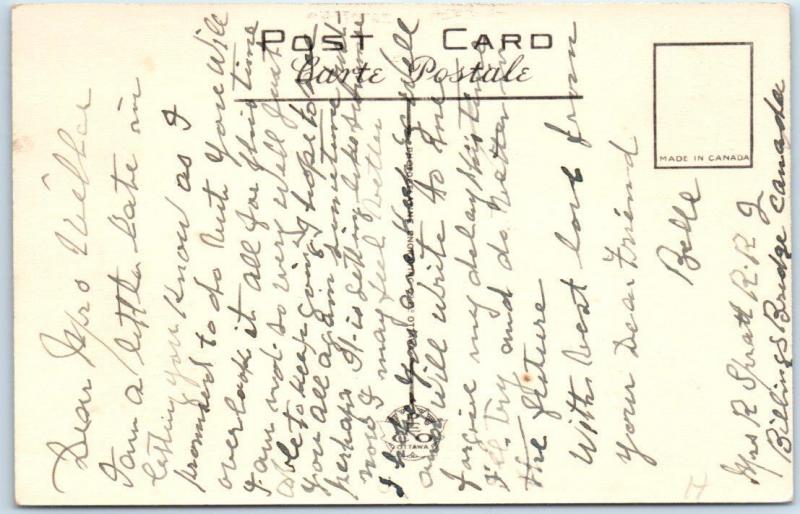 POST CARD
Carte Postale
MADE IN CANADA
OTTAWA
Dear Mrs Wilber
I am a little late in
letting you know as I
promised to do but you will
overlook it all for this time
I am not so very well Just
able to keep going I hope to see
you all again sometime
perhaps It is getting like summer
now I may feel better
I hope you are keeping well
and will write to me
forgive my delay this time
I'll Try and do better in
the future
With best love from
your Dear Friend
Belle
Mrs R Spratt R.R. I
Billings Bridge Canada